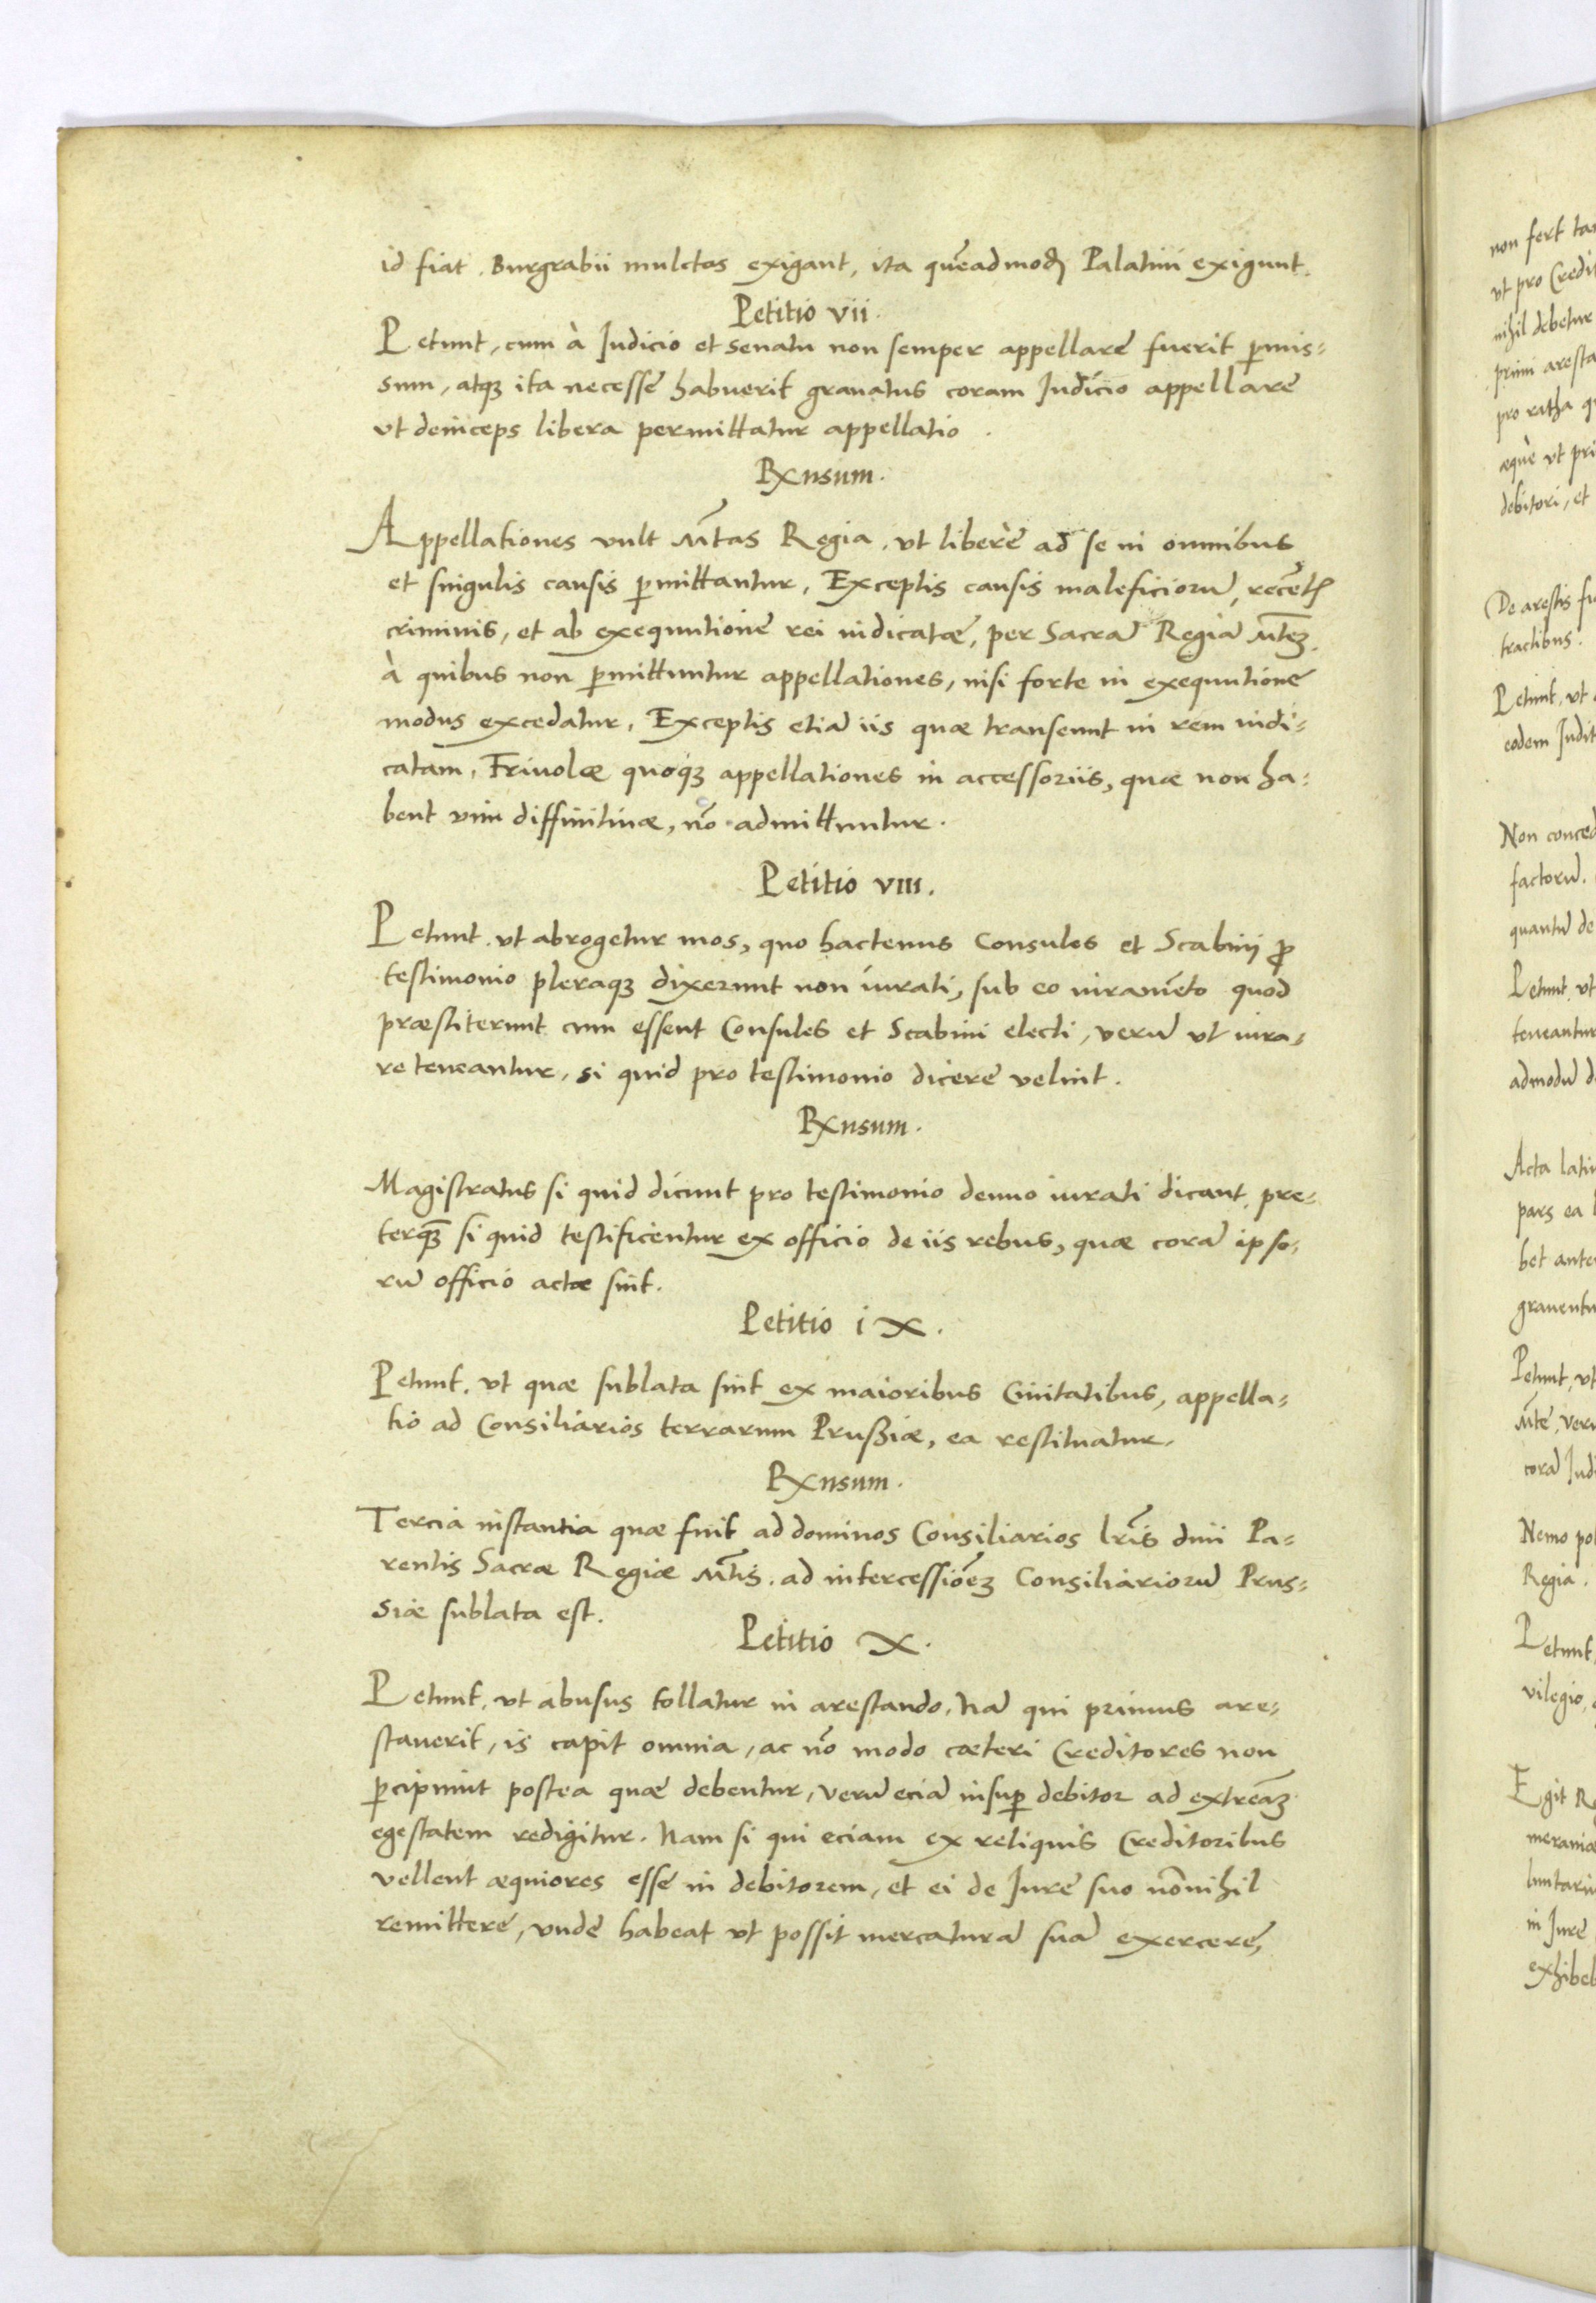 id fiat. Burgrabii mulctas exigant, ita quēadmodꝫ Palatini exigunt.
Petitio vii.
Petunt, cum à Iudicio et Senatu non semper appellare fuerit ꝑmis=
sum, atqꝫ ita necesse habuerit grauatus coram Iudicio appellare
vt deinceps libera permittatur appellatio.
Rnsum.
Appellationes vult Mt̄as Regia, vt liberè ad se in omnibus
et singulis causis ꝑmittantur, Exceptis causis maleficiorū, recētꝭ
criminis, et ab exequutione rei iudicatae, per Sacrā Regiā Mt̄eꝫ.
à quibus non ꝑmittuntur appellationes, nisi forte in exequutione
modus excedatur, Exceptis etiā iis quae transeunt in rem iudi=
catam, Friuolae quoqꝫ appellationes in accessoriis, quae non ha=
bent vim diffinitiuae, nō admittuntur.
Petitio VIII.
Petunt. vt abrogetur mos, quo hactenus Consules et Scabinij ꝓ
testimonio pleraqꝫ dixerunt non iurati, sub eo iuramēto quod
praestiterunt cum essent Consules et Scabini electi, verū vt iura=
re teneantur, si quid pro testimonio dicere velint.
Rnsum.
Magistratus si quid dicunt pro testimonio denuo iurati dicant, pre=
terqꝫ̄ si quid testificentur ex officio de iis rebus, quae corā ipso=
rū officio actae sint.
Petitio iX.
Petunt. vt quae sublata sint ex maioribus Ciuitatibus, appella=
tio ad Consiliarios terrarum Prußiae, ea restituatur.
Rnsum.
Tercia instantia quae fuit ad dominos Consiliarios lr̄is dini Pa=
rentis Sacrae Regiae Mt̄is. ad intercessiōeꝫ Consiliariorū Prus=
siae sublata est.
Petitio X.
Petunt. vt abusus tollatur in arestando. Nā qui primus are=
stauerit, is capit omnia, ac nō modo caeteri Creditores non
ꝑcipiunt postea quae debentur, verū eciā insuꝑ debitor ad extreāꝫ
egestatem redigitur. Nam si qui eciam ex reliquis Creditoribus
vellent aequiores esse in debitorem, et ei de Iure suo nōnihil
remittere, vnde habeat vt possit mercaturā suā exercere,
non fert
vt pro
nihil debetur
primi
pro ratha
aequè vt
debitori, et
De arestis
tractibus.
Petunt, vt
eodem
Non
factorū.
quantū de
Petunt, vt
teneantur
admodū
Acta
pars ea
bet
Petunt, vt
corā
Nemo
Regia.
Petunt,
vilegio,
Egit
in Iure